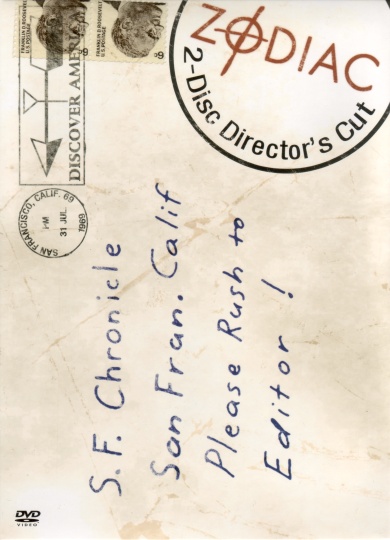 FRANKLIN D. ROOSEVELT
U.S. POSTAGE
6¢
FRANKLIN D. ROOSEVELT
U.S. POSTAGE
6¢
ZODIAC
2-Disc Director's Cut
DISCOVER AMERICA
SAN FRANCISCO, CALIF. 69
PM
31 JUL
1969
S.F. Chronicle
San Fran. Calif
Please Rush to
Editor !
DVD
VIDEO